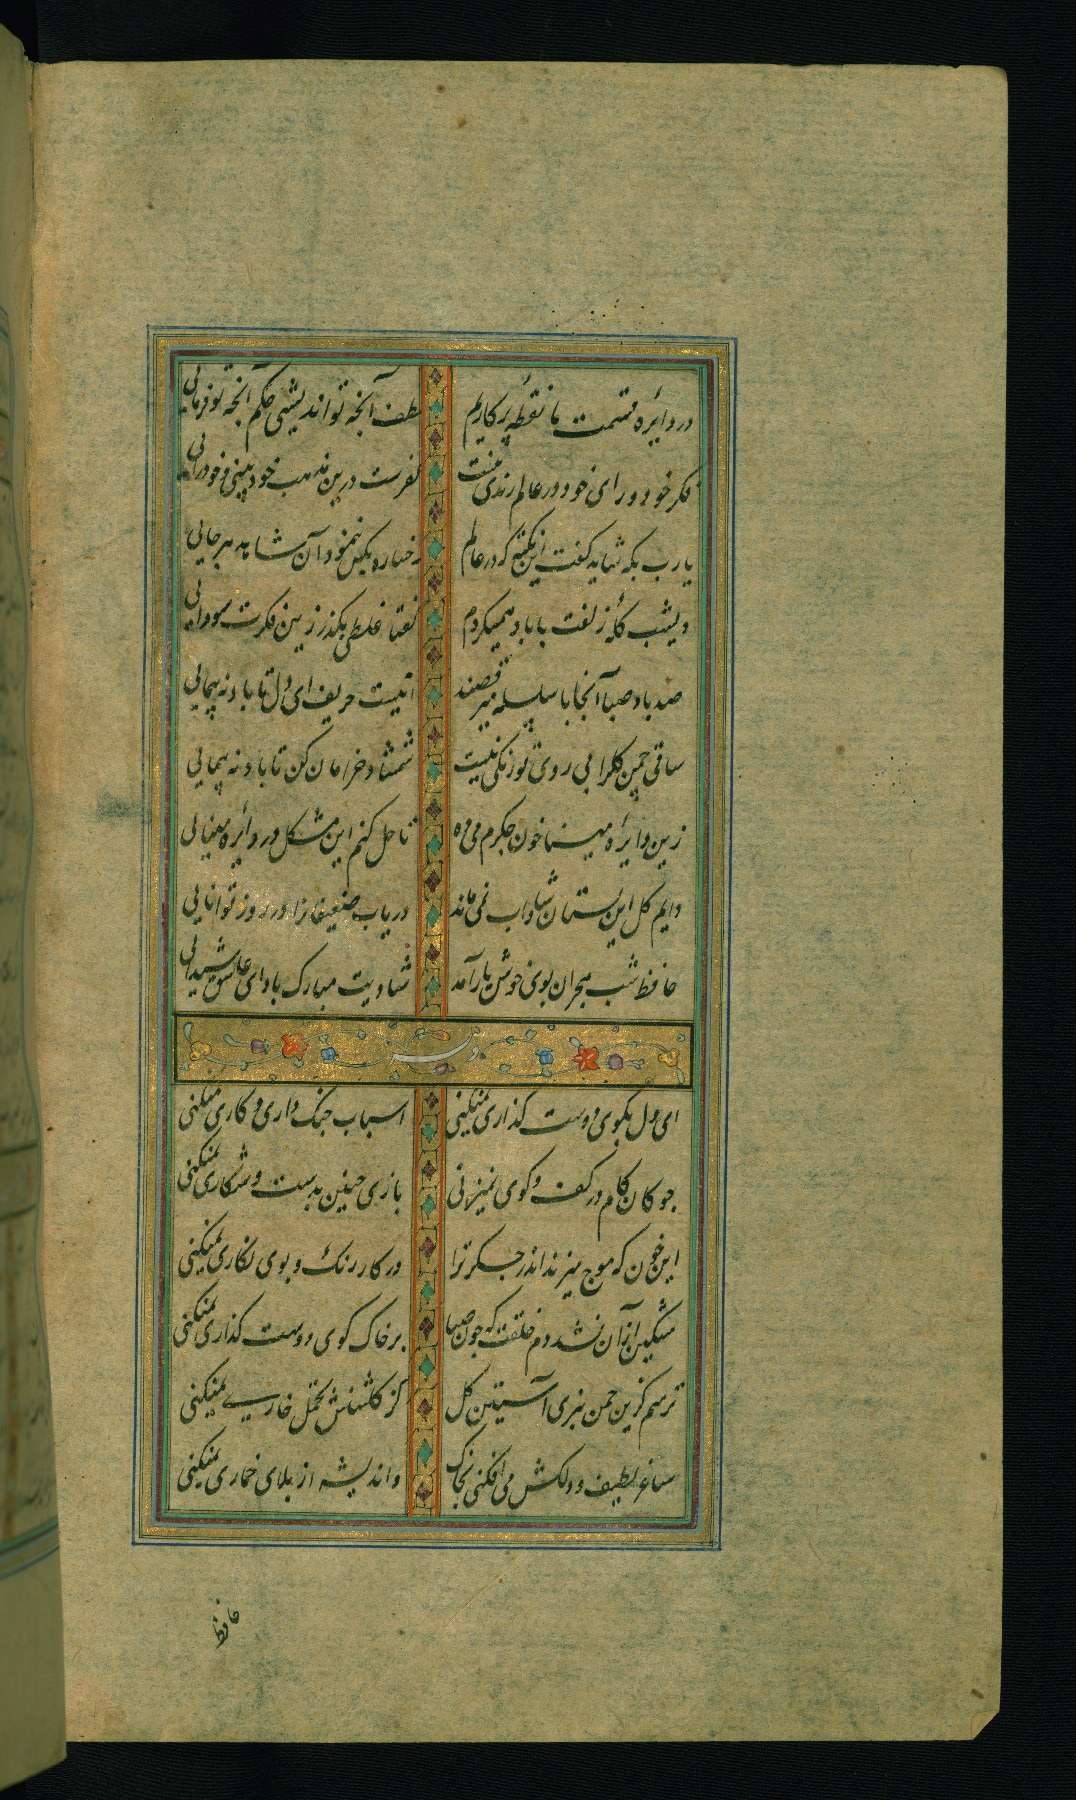 در دائره قسمت ما نقطه پرکاریم لطف آنچه تو اندیشی حکم آنچه تو فرمایی
فکر خود و رای خود در عالم رندی نیست کفرست درین مذهب خودبینی و خودرایی
یارب بکه شاید گفت این نکته که در عالم رخساره بکس ننمود آن شاهد هرجایی
دیشب گله زلفت با باد همیکردم گفتا غلطی بگذر زین فکرت سودایی
صد باد صبا آنجا با سلسله میرقصند اینست حریف ای دل تا باد نه پیمایی
ساقی چمن گلرا بی روی تو رنگی نیست شمشاد خرامان کن تا باد نه پیمایی
زین دایره مینا خون جگرم می ده تا حل کنم این مشکل در دایره مینایی
دایم گل این بستان شاداب نمی ماند دریاب ضعیفانرا در روز توانایی
حافظ شب هجران بوی خوش یار آمد شادیت مبارک باد ای عاشق شیدایی
ای دل بکوی دوست گذاری نمیکنی اسباب جمع داری و کاری نمیکنی
چوکان کام در کف و گوی نمیزنی بازی چنین بدست و شکاری نمیکنی
این خون که موج میزند اندر جگر ترا در کار رنگ و بوی نگاری نمیکنی
مشکین از آن نشد دم خلقت که چون صبا بر خاک کوی دوست گذاری نمیکنی
ترسم کزین چمن نبری آستین گل کز گلشنش تحمل خاری نمیکنی
ساغر لطیف و دلکش می افکنی بخاک و اندیشه از بلای خماری نمیکنی
حافظ